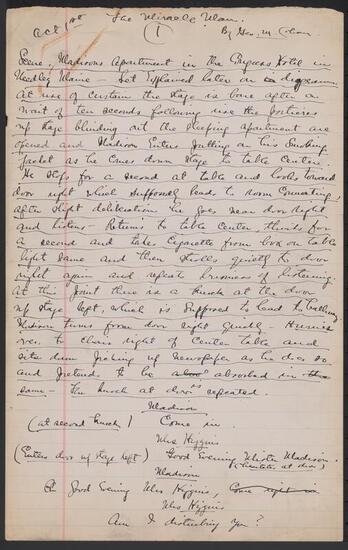 Act 1st The Miracle Man.
(1) By Geo. M. Cohan
Scene, Madisons Apartment in the Hotel in
Needley Maine – Set Explained later on in
At rise of curtain the stage is bare after a
wait of ten seconds following rise the Portieres
up stage blinding out the sleeping apartment are
opened and Madison Enters putting on his smoking
jacket as he comes down stage to table Center.
He stops for a second at table and looks toward
door right which supposedly leads to room connecting,
after slight deliberation he goes near door right
and listens – Returns to table center, thinks for
a second and takes cigarette from box on table
light same and then strolls quietly to door
right again and repeats business of listening.
At this point there is a knock at the door
up stage left, which is supposed to lead to hallway
Madison turns from door right quickly – Hurries
over to chair right of center table and
sits down picking up newspaper as he does so
and pretends to be absorbed in the
same – the knock at door is repeated.
Madison
(at second knock) Come in.
Mrs Higgins
(Enters door up stage left) Good Evening Mister Madison.
(hesitates at door)
Madison
Good Evening Mrs Higgins, Come right in
Mrs Higgins
Am I disturbing you?